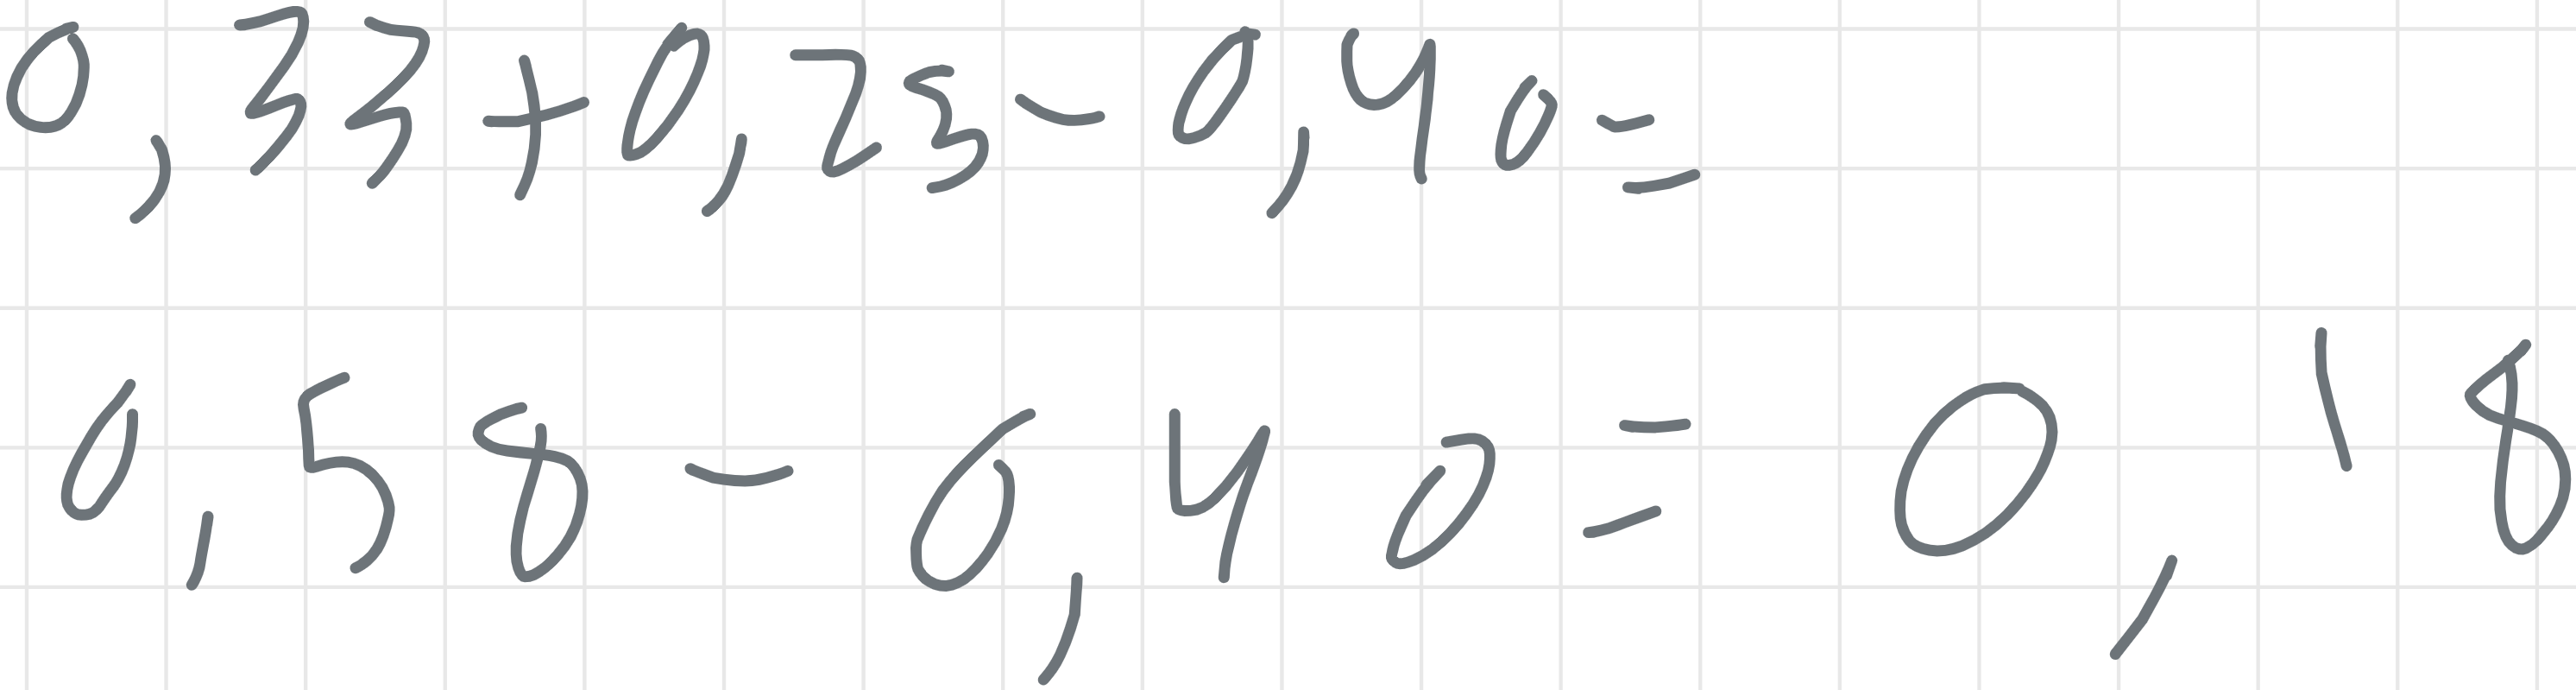 0,33+0,25-0,40=
0,58-0,40=0,18